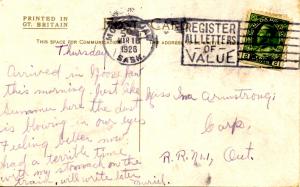 PRINTED IN
GT. BRITAIN
CARD
THIS SPACE FOR COMMUNICATION
THE ADDRESS
MOOSE JAW
1926
SASK.
REGISTER
ALL LETTERS
-OF-
VALUE
Thursday
Arrived in Moose Jaw
this morning. Just like
Summer here the dust
is blowing in our eyes
Feeling better now
had a terrible time
with my stomach on the
train, will write later
Muriel.
Miss Ina Armstrong
Carp,
R.R. No 1, Ont.